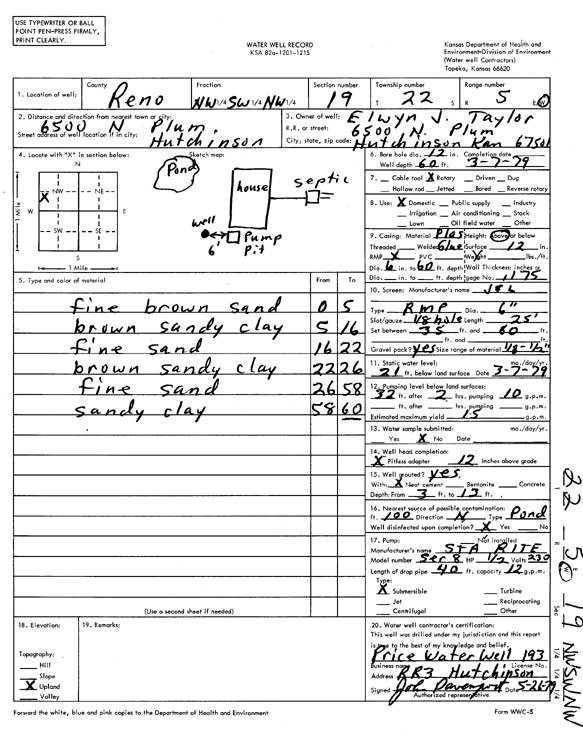 USE TYPEWRITER OR BALL
POINT PEN-PRESS FIRMLY,
PRINT CLEARLY.
WATER WELL RECORD
KSA 82a-1201-1215
Kansas Department of Health and
Environment-Division of Environment
(Water well Contractors)
Topeka, Kansas 66620
1. Location of well: County Reno Fraction NW 1/4 SW 1/4 NW 1/4 Section number 19 Township number T 22 S Range number R 5 E/W
2. Distance and direction from nearest town or city:
Street address of well location if in city: 6500 N Plum Hutchinson
3. Owner of well: Elwyn J. Taylor
R.R. or street: 6500 N. Plum
City, state, zip code: Hutchinson Kan 67501
4. Locate with "X" in section below:
Sketch map:
N
NW NE
X
W E
SW SE
S
1 Mile
1 Mile
Pond
house
septic
well
6'
Pump
Pit
5. Type and color of material From To
fine brown sand 0 5
brown sandy clay 5 16
fine sand 16 22
brown sandy clay 22 26
fine sand 26 58
sandy clay 58 60
(Use a second sheet if needed)
6. Bore hole dia. 12 in. Completion date
Well depth 60 ft. 3-7-79
7. Cable tool X Rotary Driven Dug
Hollow rod Jetted Bored Reverse rotary
8. Use: X Domestic Public supply Industry
Irrigation Air conditioning Stock
Lawn Oil field water Other
9. Casing: Material Plas Height: Above or below
Threaded Welded Glue Surface 12 in.
RMP X PVC Weight lbs./ft.
Dia. 6 in. to 60 ft. depth Wall Thickness: inches or
Dia. in. to ft. depth gage No. .175
10. Screen: Manufacturer's name
Type RMP Dia. 6"
Slot/gauze 1/8 hole Length 25'
Set between 35 ft. and 60 ft.
ft. and ft.
Gravel pack? yes Size range of material 1/8-1/2"
11. Static water level: mo./day/yr.
21 ft. below land surface Date 3-7-79
12. Pumping level below land surfaces:
32 ft. after 2 hrs. pumping 10 g.p.m.
ft. after hrs. pumping g.p.m.
Estimated maximum yield 15 g.p.m.
13. Water sample submitted: mo./day/yr.
Yes X No Date
14. Well head completion:
X Pitless adapter 12 Inches above grade
15. Well grouted? yes.
With: X Neat cement Bentonite Concrete
Depth: From 3 ft. to 13 ft.
16. Nearest source of possible contamination:
ft. 100 Direction N Type Pond
Well disinfected upon completion? X Yes No
17. Pump: Not installed
Manufacturer's name STA RITE
Model number Ser 8 HP 1/2 Volts 230
Length of drop pipe 40 ft. capacity 12 g.p.m.
Type:
X Submersible Turbine
Jet Reciprocating
Centrifugal Other
18. Elevation:
19. Remarks:
Topography:
Hill
Slope
X Upland
Valley
20. Water well contractor's certification:
This well was drilled under my jurisdiction and this report
is true to the best of my knowledge and belief.
Price Water Well 193
Business name License No.
Address RR3 Hutchinson
Signed John Davenport Date 5-26-79
Authorized representative
Forward the white, blue and pink copies to the Department of Health and Environment
Form WWC-5
22 5 W 19 NWSWNW
T R E W Sec 1/4 1/4 1/4